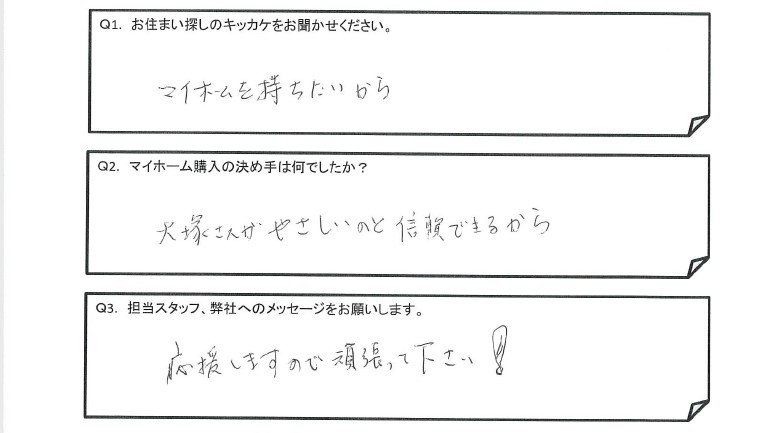 Q1. お住まい探しのキッカケをお聞かせください。
マイホームを持ちたいから
Q2. マイホーム購入の決め手は何でしたか？
犬塚さんがやさしいのと信頼できるから
Q3. 担当スタッフ、弊社へのメッセージをお願いします。
応援しますので頑張って下さい！